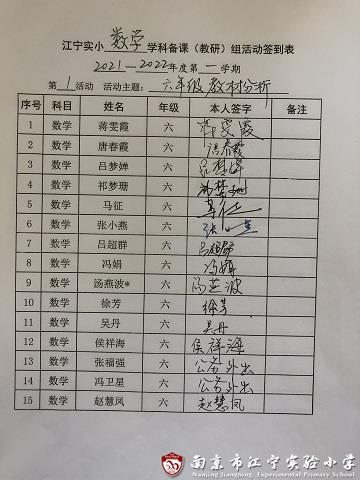 江宁实小 数学 学科备课（教研）组活动签到表
2021—2022年度第一学期
第 1 活动 活动主题：六年级教材分析
序号 科目 姓名 年级 本人签字 备注
1 数学 蒋雯霞 六 蒋雯霞
2 数学 唐春霞 六 唐春霞
3 数学 吕梦婵 六 吕梦婵
4 数学 祁梦珊 六 祁梦珊
5 数学 马征 六
6 数学 张小燕 六 张小燕
7 数学 吕超群 六 吕超群
8 数学 冯娟 六 冯娟
9 数学 汤燕波* 六 汤燕波
10 数学 徐芳 六 徐芳
11 数学 吴丹 六 吴丹
12 数学 侯祥海 六 侯祥海
13 数学 张福强 六 公务外出
14 数学 冯卫星 六 公务外出
15 数学 赵慧凤 六 赵慧凤
南京市江宁实验小学
Nanjing Jiangning Experimental Primary School